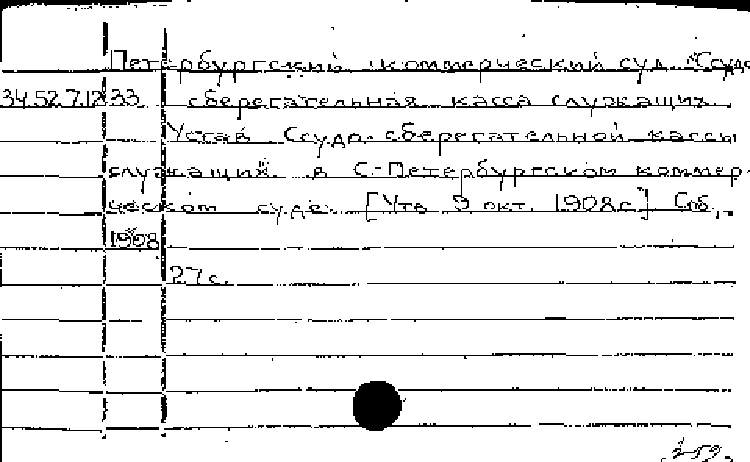 Петербургский коммерческий суд. Ссудо
34.52.7.12.33 сберегательная касса служащих.
Устав Ссудо-сберегательной кассы
служащих в С.-Петербургском коммер-
ческом суде. [Утв. 9 окт. 1908 г.] Спб.,
1908
27 с.